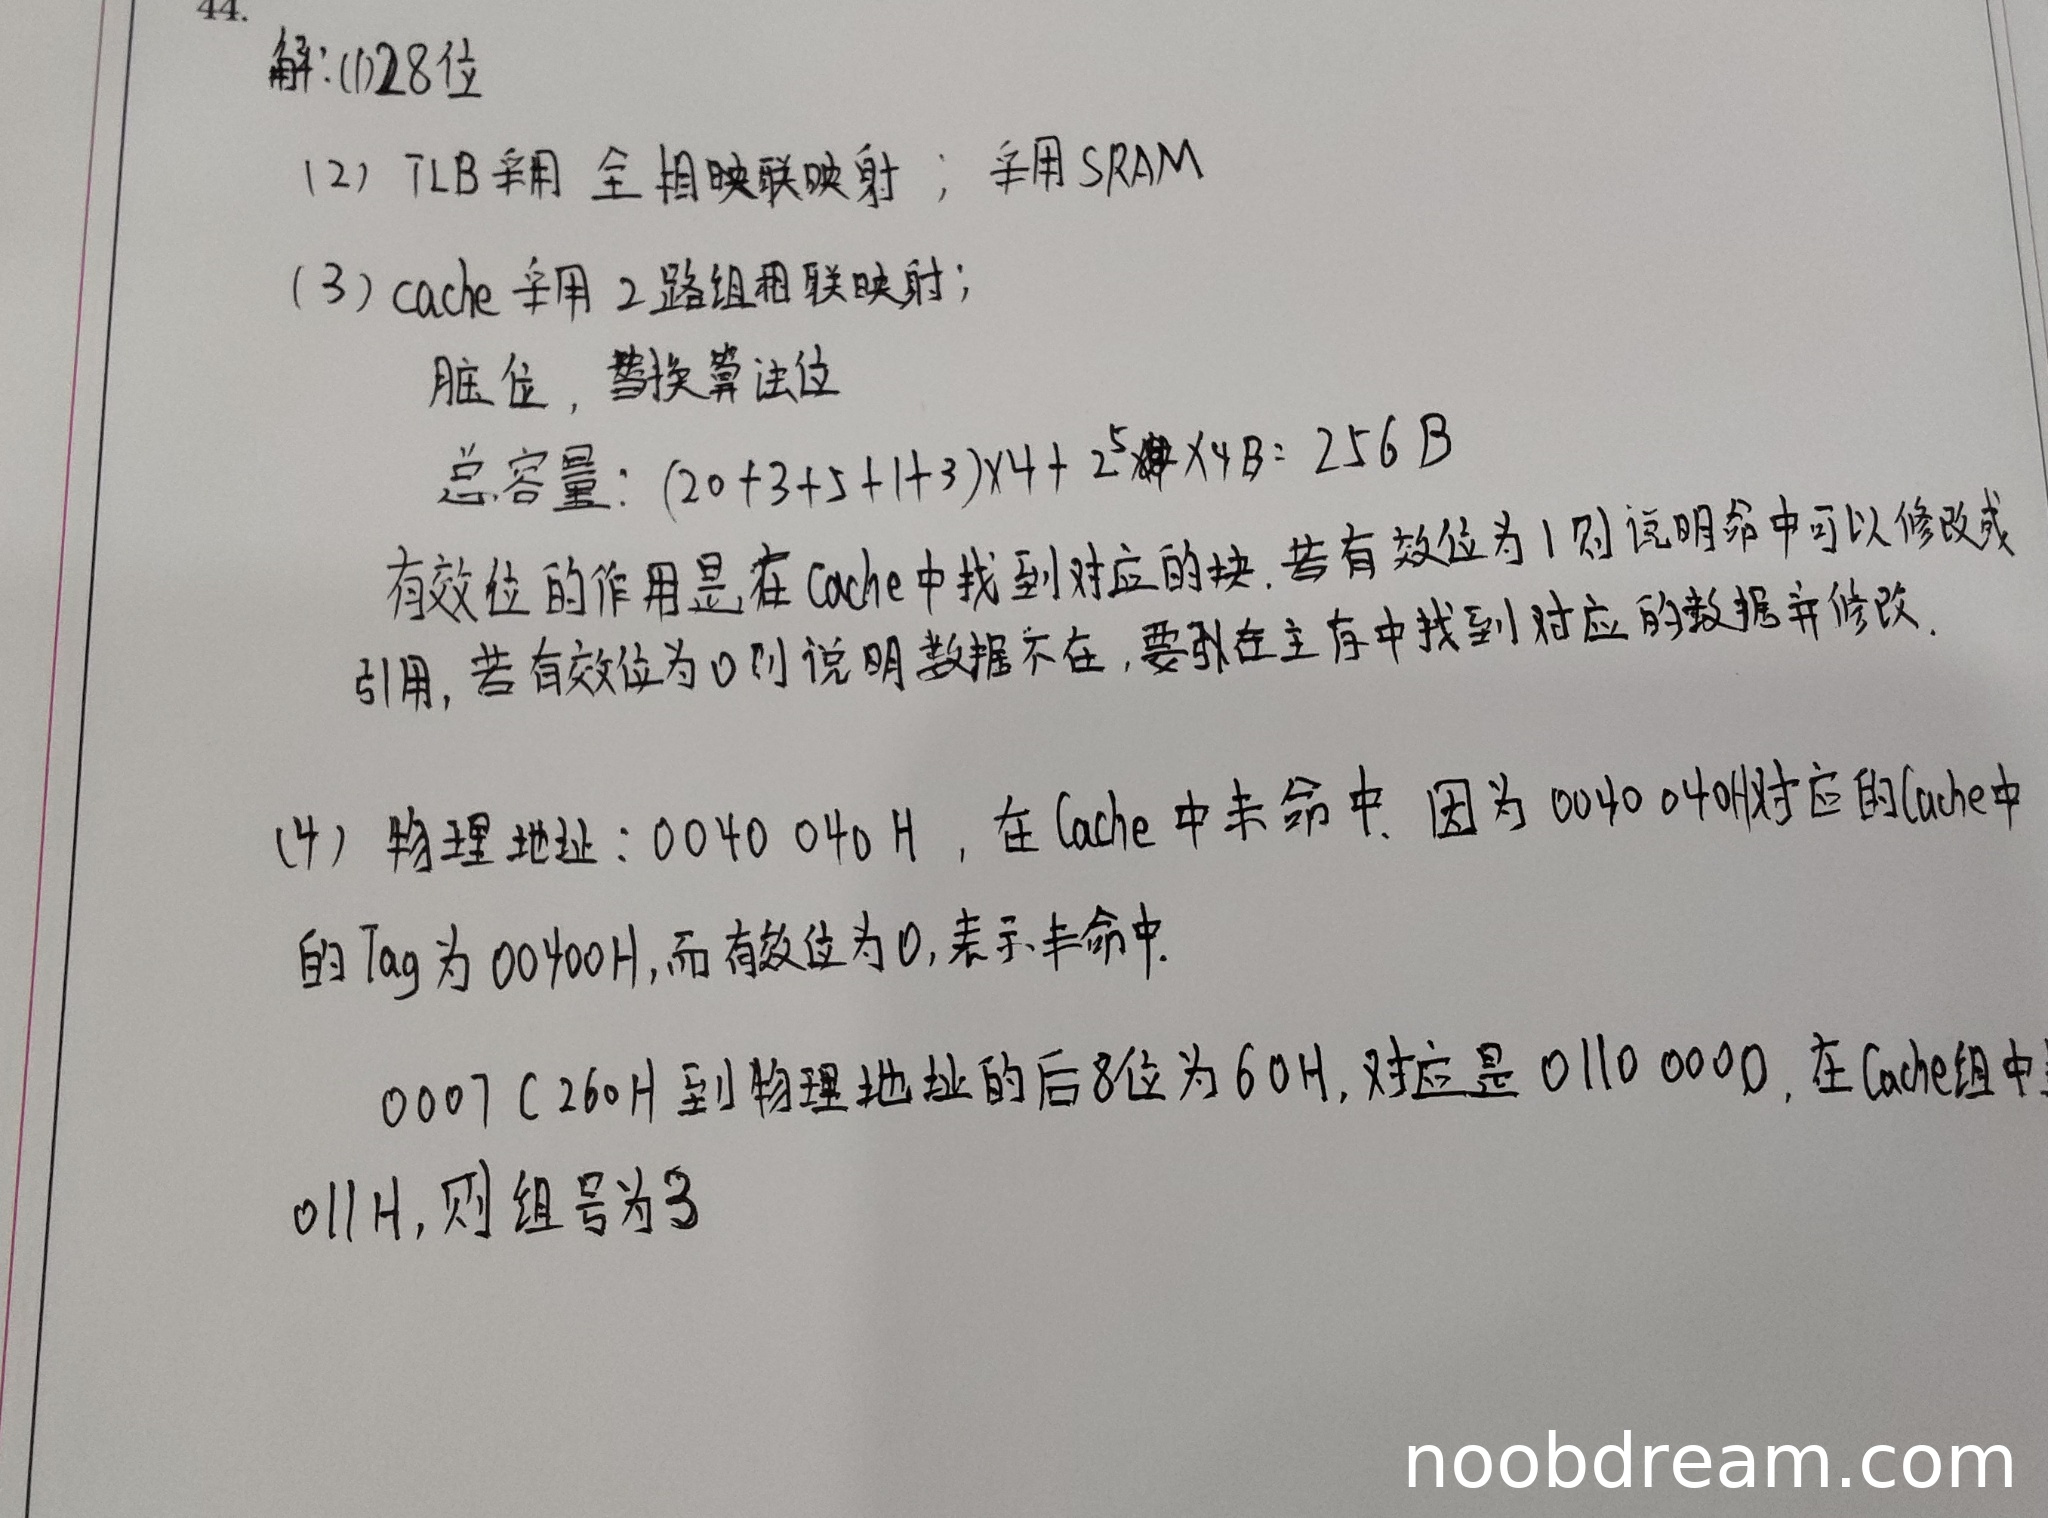 44.
解:(1)28位
(2) TLB采用 全相联映射 ; 采用SRAM
(3) cache 采用 2路组相联映射;
脏位, 替换算法位
总容量: (20+3+5+1+3)×4+ 2⁵ ×4B= 256 B
有效位的作用是在Cache中找到对应的块.若有效位为1则说明命中可以修改或
引用,若有效位为0则说明数据不在,要在主存中找到对应的数据并修改.
(4) 物理地址: 0040 040 H , 在 Cache 中未命中. 因为 0040 040H对应的Cache中
的Tag为00400H,而有效位为0,表示未命中.
0007 C260H到物理地址的后8位为60H,对应是0110 0000,在Cache组中
011H,则组号为3
noobdream.com